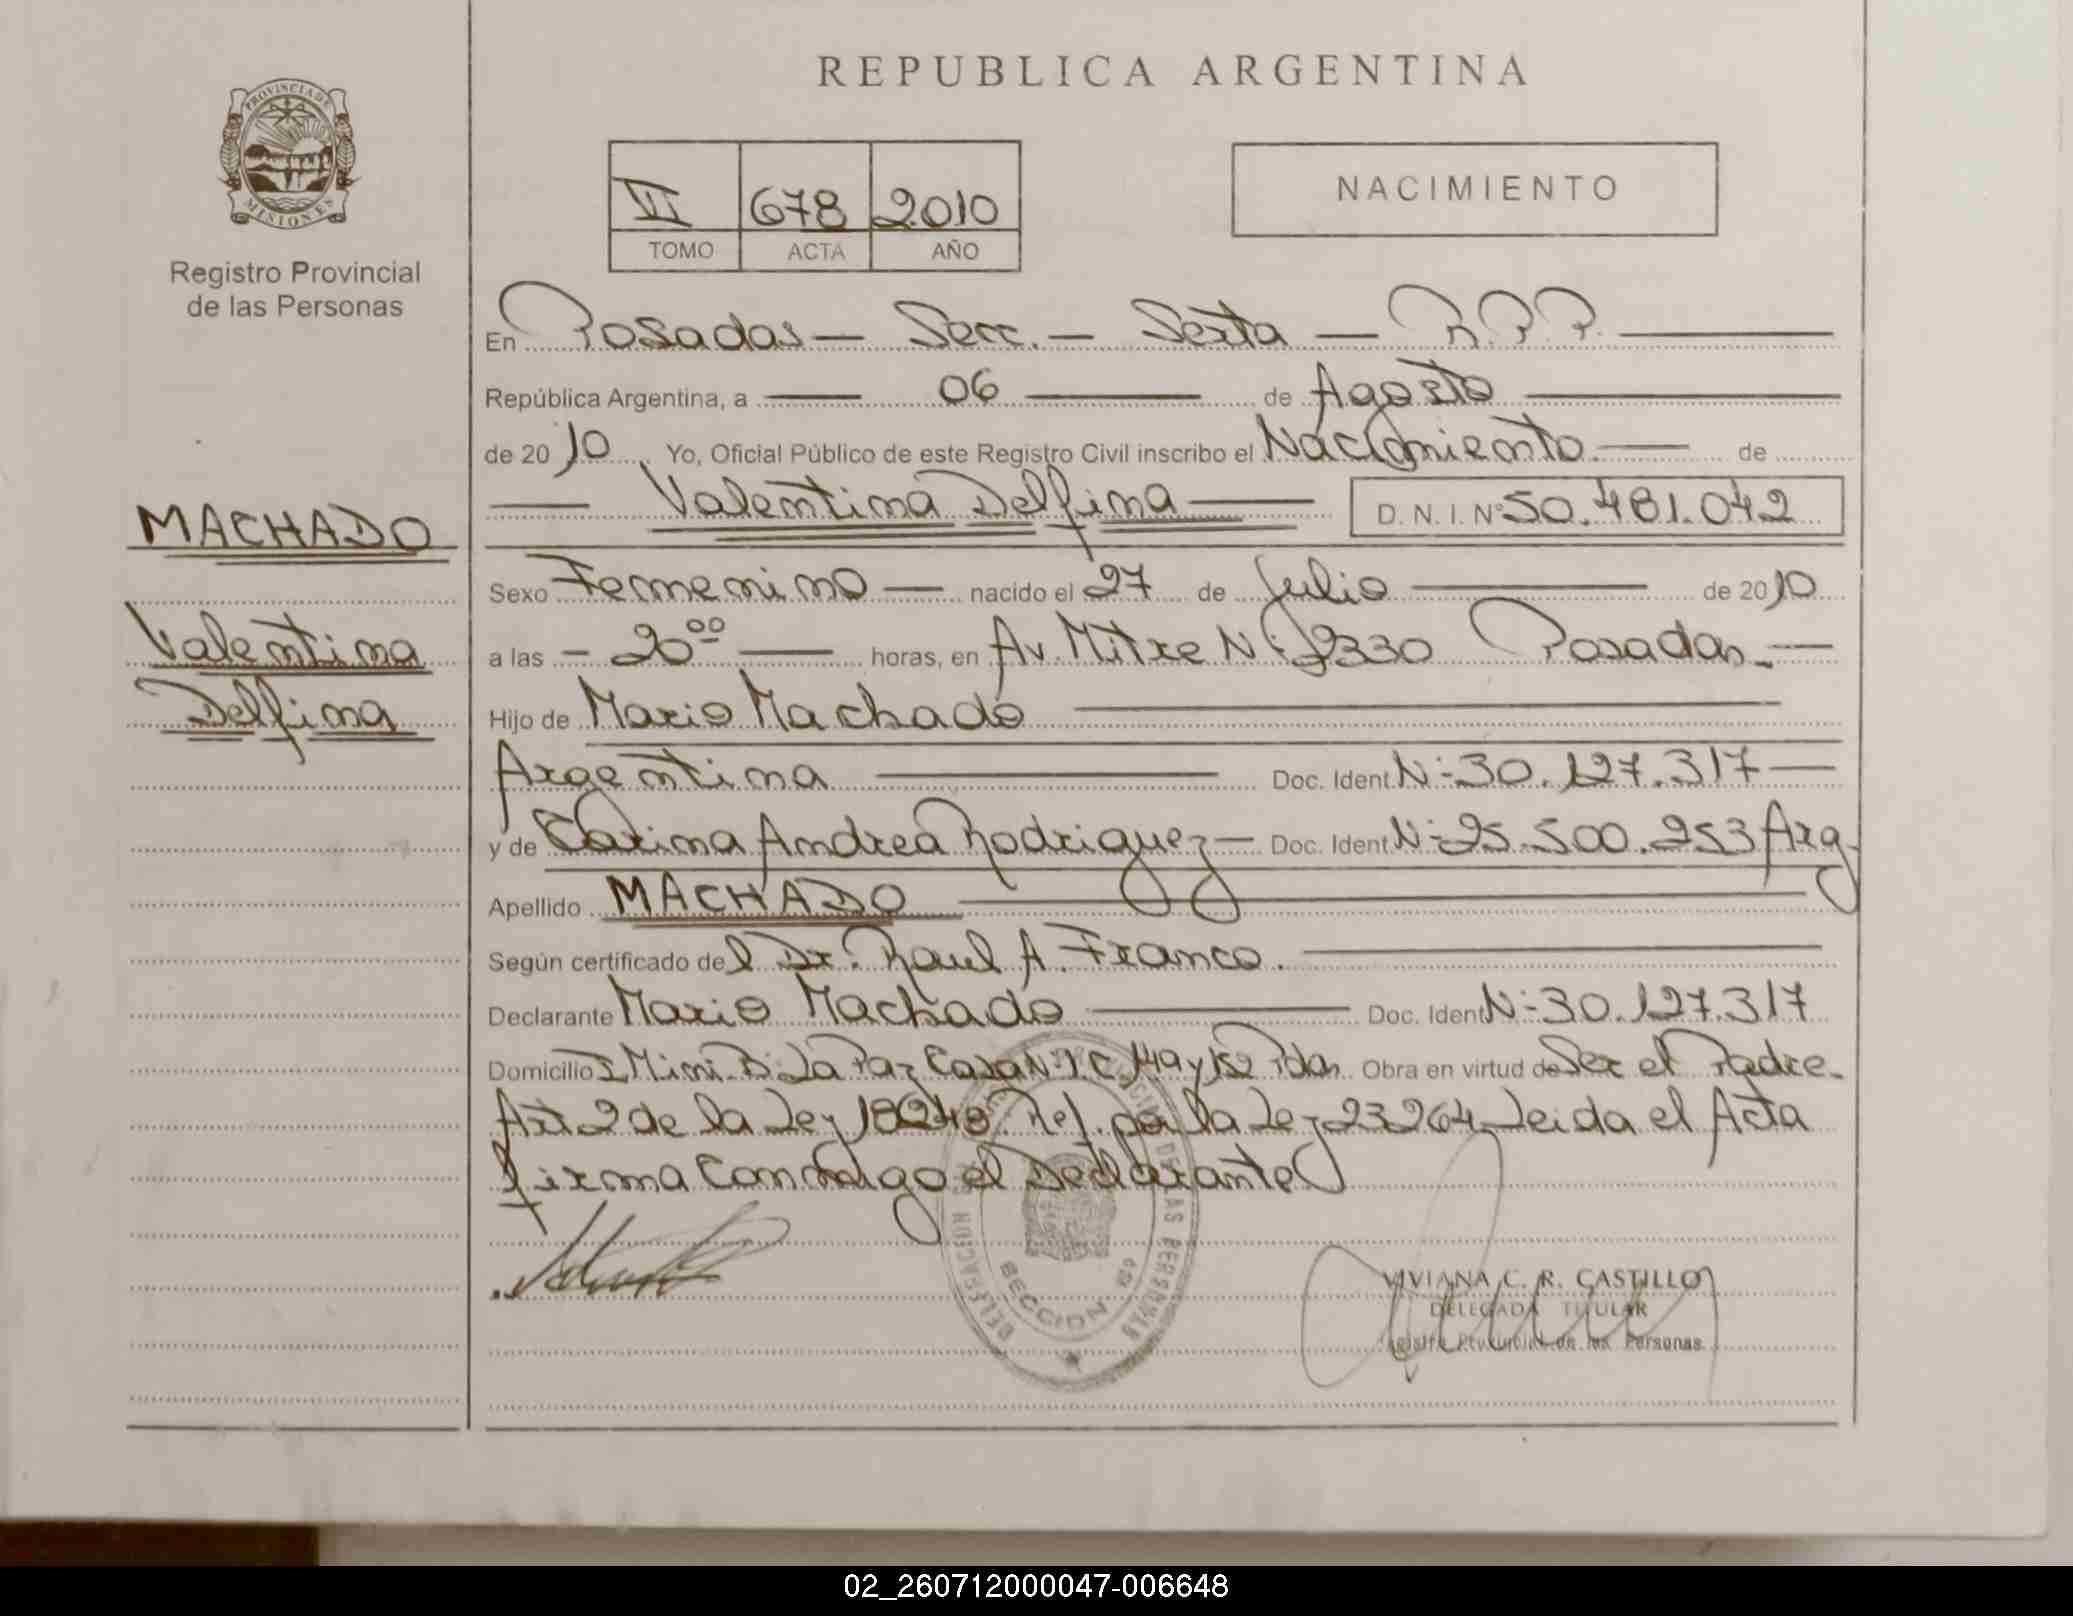 REPUBLICA ARGENTINA
PROVINCIA DE MISIONES
Registro Provincial
de las Personas
VI 678 2010
TOMO ACTA AÑO
NACIMIENTO
En Posadas — Secc. — Sexta — R.P.P.
República Argentina, a — 06 — de Agosto
de 2010 Yo, Oficial Público de este Registro Civil inscribo el Nacimiento. — de
— Valentina Delfina — D. N. I. Nº 50.481.042
MACHADO
Valentina
Delfina
Sexo Femenino — nacido el 27 de Julio — de 2010
a las - 20⁰⁰ — horas, en Av. Mitre Nº 2330 Posadas. —
Hijo de Mario Machado —
Argentina — Doc. Ident. Nº 30.127.317 —
y de Carina Andrea Rodriguez — Doc. Ident. Nº 25.500.253 Arg.
Apellido MACHADO —
Según certificado del Dr. Raul A. Franco. —
Declarante Mario Machado — Doc. Ident. Nº 30.127.317
Domicilio Bº La Paz Casa Nº 1 C. 149 y 152 Pdas. Obra en virtud de Ser el Padre.
Art 2 de la Ley 18248 Ref. por la Ley 23264 Leida el Acta
firma Conmigo el Declarante
DELEGACION DE LAS PERSONAS
SECCION 6ª
VIVIANA C. R. CASTILLO
DELEGADA TITULAR
Registro Provincial de las Personas
02_260712000047-006648